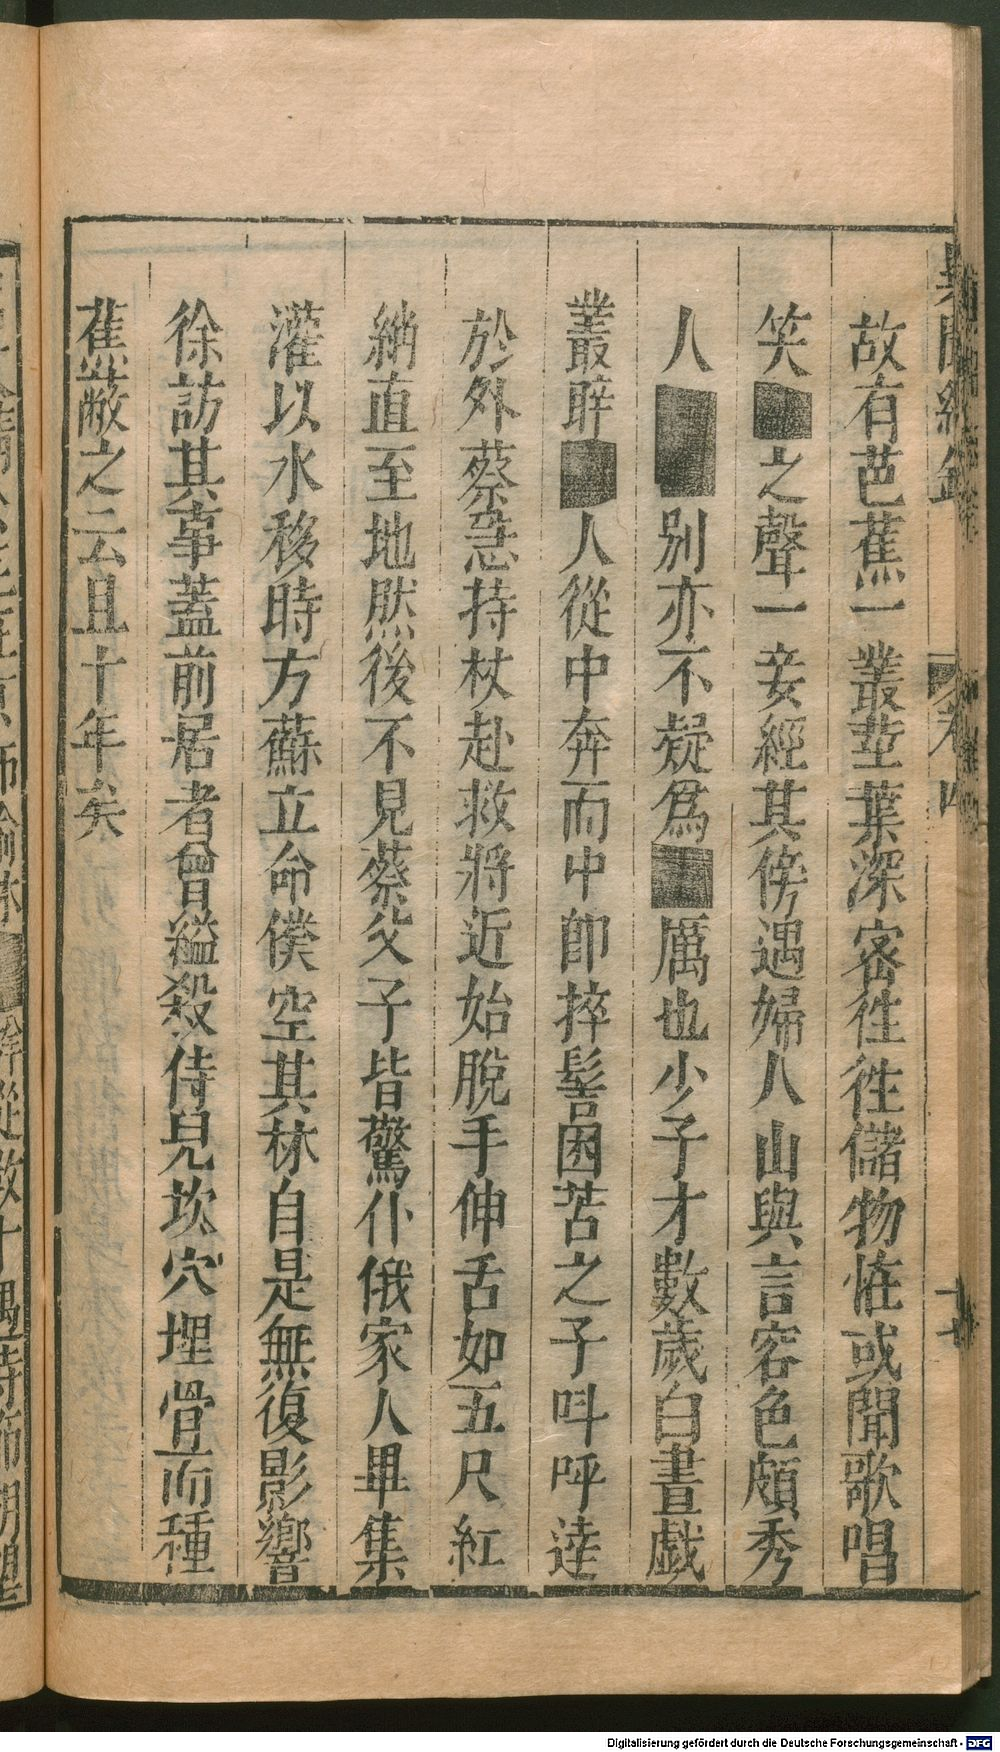 故有芭蕉一叢莖葉深密徃徃儲物恠或聞歌唱
笑■之聲一妾經其傍遇婦人出與言容色頗秀
人■■別亦不疑爲■厲也少子才數歲白晝戲
叢辟■人從中奔而中卽捽髻困苦之子呌呼達
於外蔡急持杖赴救將近始脫手伸舌如五尺紅
綃直至地然後不見蔡父子皆驚仆俄家人畢集
灌以水移時方蘇立命僕空其林自是無復影響
徐訪其事蓋前居者曾縊殺侍兒坎穴埋骨而種
蕉蔽之云且十年矣
Digitalisierung gefördert durch die Deutsche Forschungsgemeinschaft - DFG